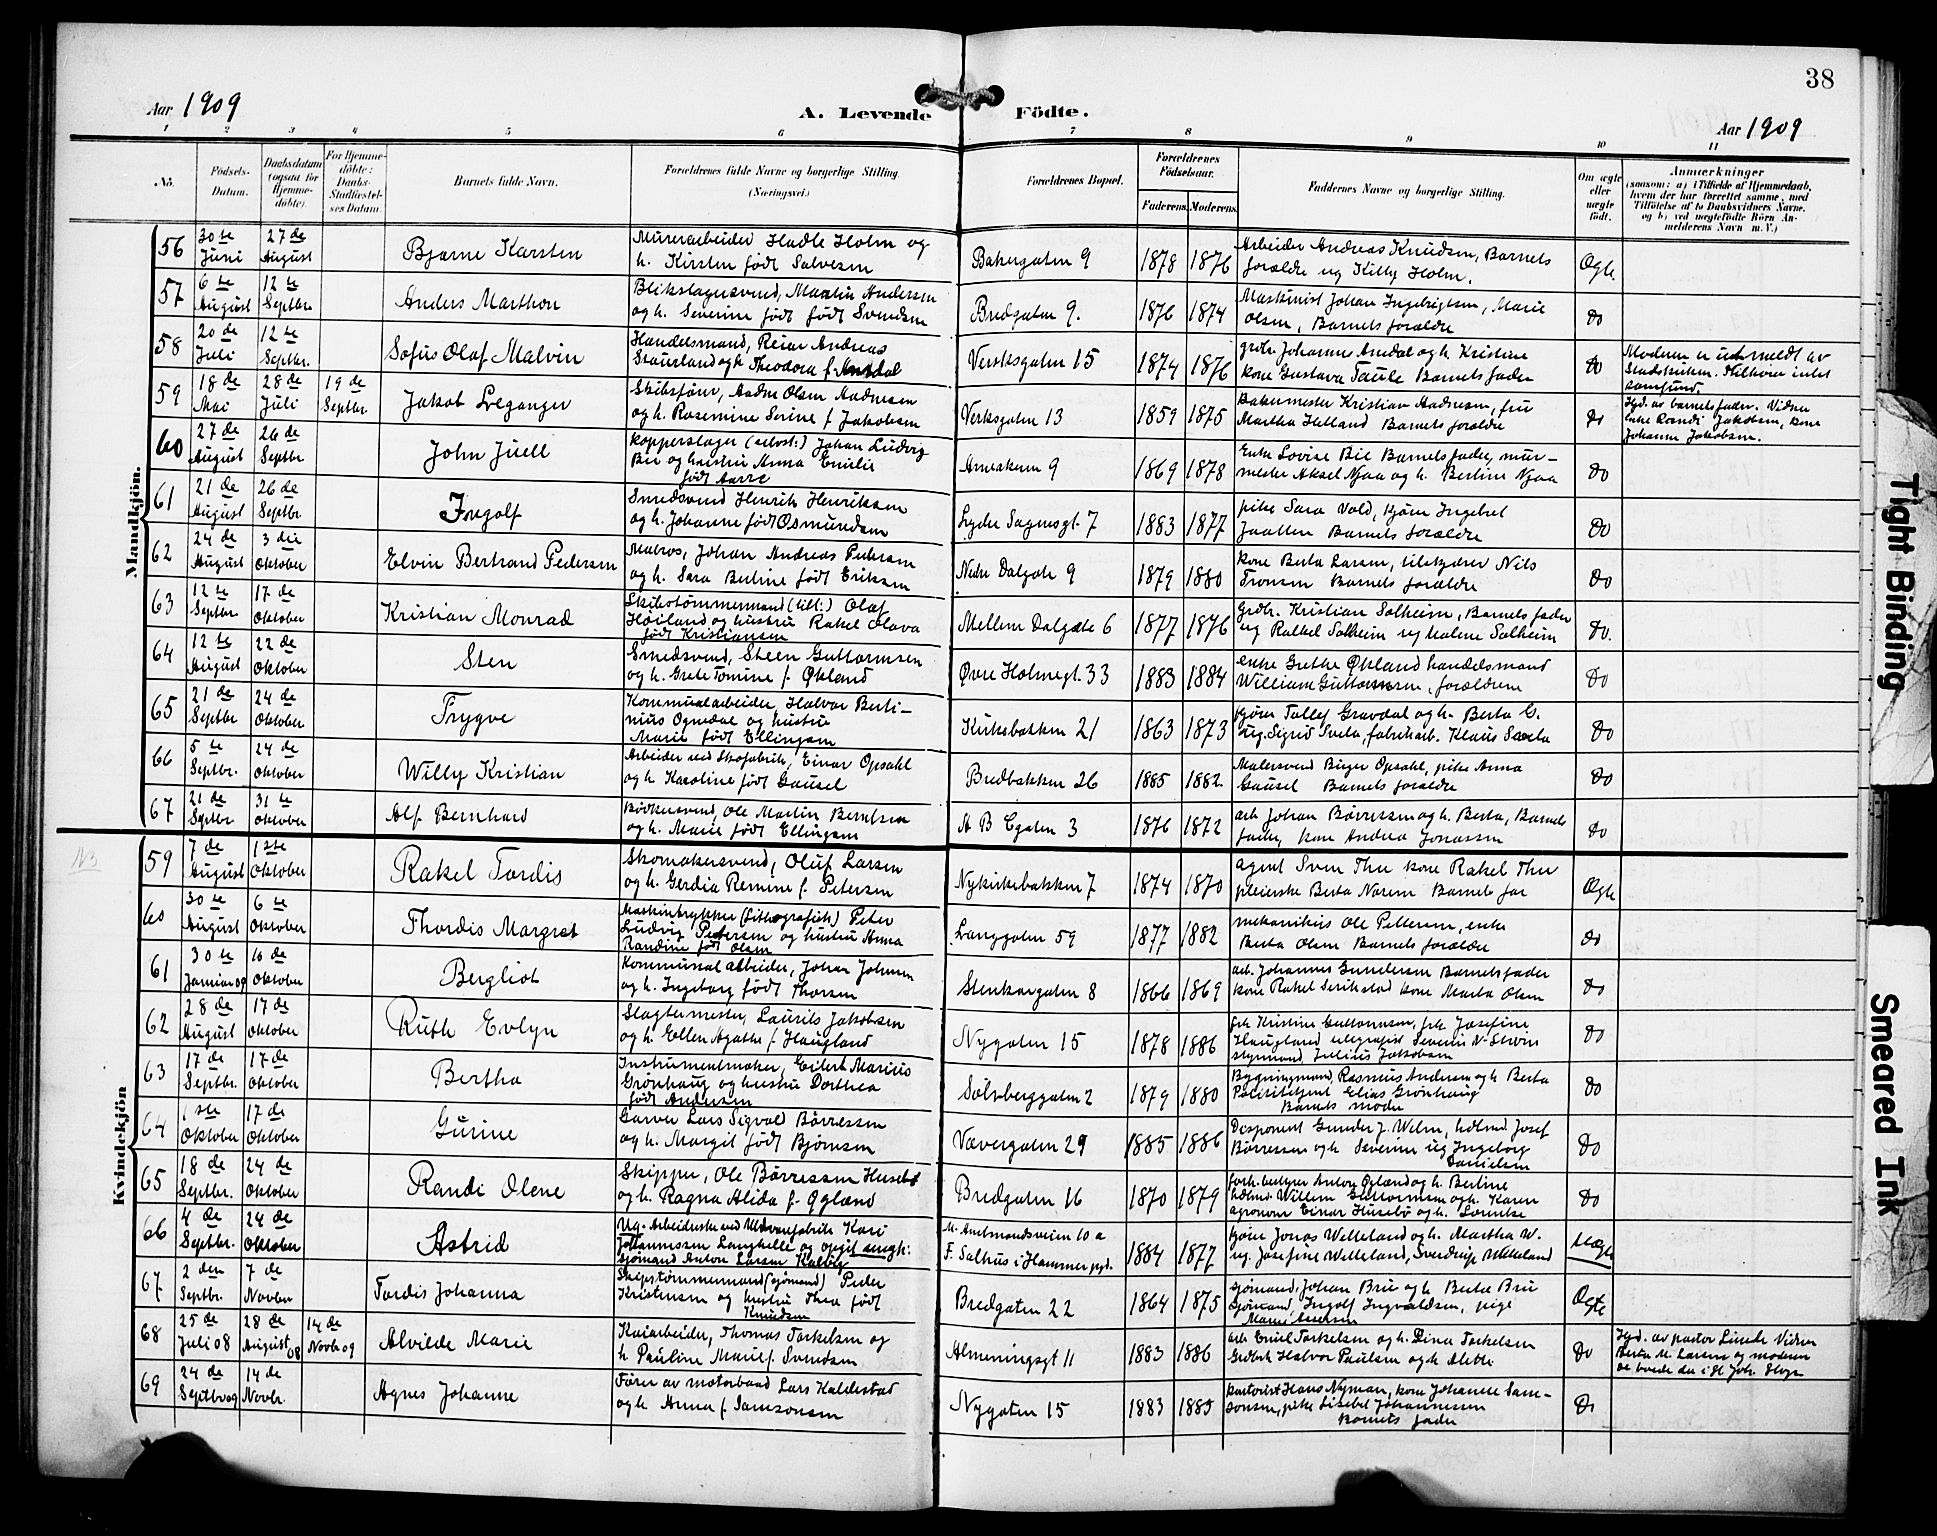 38
Aar 1909
A. Levende Födte.
Aar 1909
1 2 3 4 5 6 7 8 9 10 11
No. Födsels-Datum. Daabsdatum (ogsaa for Hjemme-döbte). For Hjemme-döbte: Daabs-Stadfæstel-ses Datum. Barnets fulde Navn. Forældrenes fulde Navne og borgerlige Stilling. (Næringsvei.) Forældrenes Bopæl. Forældrenes Födselsaar. Faderens. Moderens. Faddernes Navne og borgerlige Stilling. Om ægte eller uægte födt. Anmærkninger (saasom: a) i Tilfælde af Hjemmedaab, hvem der har forrettet samme, med Tilföielse af to Daabsvidners Navne, og b) ved uægtefödte Börn An-melderens Navn m. V.)
Mandkjön.
56 30te Juni 27de August Bjarne Karsten Murerarbeider Hadle Holm og h. Kirsten født Salvesen Bakergaten 9 1878 1876 Arbeider Andreas Knudsen, Barnets forældre og Kitty Holm. Ægte
57 6te August 12te Septbr Anders Marthon Blikslagersvend, Martin Andersen og h. Severine født født Svendsen Bredgaten 9. 1876 1874 Maskinist Johan Ingebrigtsen, Marie Olsen, Barnets forældre Do
58 20de Juli 12te Septbr. Sofus Olaf Malvin Handelsmand, Reier Andreas Staurland og h. Theodora f. Aredal Verksgaten 15 1874 1876 grdbr. Johannes Aredal og h. Kristine kone Gustava Taule Barnets fader Do Moderen er utmeldt av Statskirken. Tilhører intet samfund.
59 18de Mai 28de Juli 19de Septbr Jakob Leganger Skibsfører, Aadne Olsen Aadnesen og h. Rosemine Serine f. Jakobsen Verksgaten 13 1859 1875 Bakermester Kristian Aadnesen, fru Martha Helland Barnets forældre Do Hjd. av barnets fader. Vidner enke Randi Jakobsen, kone Johanne Jakobsen.
60 27de August 26de Septbr John Juell Kopperslager (selvst:) Johan Ludvig Bie og hustru Anna Emilie født Aarre 9 1869 1878 Enke Lovise Bie Barnets fader, mur-mester Aksel Njaa og h. Bertine Njaa Do
61 21de August 26de Septbr. Ingolf Smedsvend Henrik Henriksen og h. Johanne født Osmundsen Lyder Sagensgt. 7 1883 1877 pike Sara Vold, kjører Ingebret Jaatten Barnets forældre Do
62 24de August 3die Oktober Elvin Bertrand Pedersen Matros, Johan Andreas Pedersen og h. Sara Bertine født Eriksen Nedre Dalgate 9 1879 1880 kone Berta Larsen, Nils Tronsen Barnets forældre Do
63 12te Septbr. 17de Oktober Kristian Monrad Skibstømmermand (till:) Olaf Høiland og hustru Rakel Olava født Kristiansen Mellem Dalgate 6 1877 1876 Grdbr. Kristian Solheim, Barnets fader ug Rakkel Solheim ug Malene Solheim Do.
64 12te August 22de Oktober Sten Smedsvend, Steen Guttormsen og h. Grete Tomine f. Økland Øvre Holmegt. 33 1883 1884 enke Grethe Økland handelsmand William Guttormsen, forældrene Do
65 21de Septbr 24de Oktober Trygve Kommunalarbeider, Halvor Berti-nius Ognedal og hustru Marie født Ellingsen Kirkebakken 21 1863 1873 kjører Tollef Gravdal og h. Berta G. ug. Sigrid Sveta, fabrikarb. Klaus Sveta Do
66 5te Septbr. 24de Oktober Willy Kristian Arbeider ved Skofabrik, Einar Opsahl og h. Karoline født Gausel Bredbakken 26 1885 1882 Malersvend Birger Opsahl, pike Anna Gausel Barnets forældre Do
67 21de Septbr 31te Oktober Alf Bernhard Bødkersvend, Ole Martin Berntsen og h. Marie født Ellingsen A B Cgaten 3 1876 1872 arb Johan Børresen og h. Berta, Barnets fader, kone Andrea Jonassen Do
Kvindekjön
59 7de August 1ste Oktober Rakel Tordis Skomakersvend, Oluf Larsen og h. Gerdia Remine f. Petersen Nykirkebakken 7 1874 1870 agent Sven Thu kone Rakel Thu pleierske Berta Norem Barnets far Ægte
60 30te August 6te Oktober Thordis Margret Maskintrykker (Lithografisk) Peter Ludvig Pedersen og hustru Anna Randine født Olsen Langgaten 59 1877 1882 mekanikus Ole Pettersen, enke Berta Olsen Barnets forældre do
61 30te Januar 09 10de Oktober Bergliot Kommunal arbeider, Johan Johnsen og h. Ingeborg født Thorsen Stenkargaten 8 1866 1869 arb. Johannes Gundersen Barnets fader kone Rakel kone Marta Olsen Do
62 28de August 17de Oktober Ruth Evlyn Slagtermester, Laurits Jakobsen og h. Ellen Agathe f. Haugland Nygaten 15 1878 1886 frk Kristine Guttormsen, frk Josefine Haugland telegrafist Severin N. styrmand Julius Jakobsen Do
63 17de Septbr. 17de Oktober Bertha Instrumentmaker, Eilert Marius Grønhaug og hustru Dorthea født Andersen Sølvberggaten 2 1879 1880 Bygningsmand, Rasmus Andersen og h Berta Politibetjent Elias Grønhaug Barnets moder Do
64 1ste Oktober 17de Oktober Gurine Garver Lars Sigval Børresen og h. Margit født Bjørnsen Vævergaten 29 1885 1886 Disponent Gunder J. Welm, hdlmd. Josef Børresen og h. Severine ug Ingeborg Danielsen Do
65 18de Septbr. 24de Oktober Randi Olene Skipper, Ole Børresen Husebø og h. Ragna Alida f. Oglænd Bredgaten 16 1870 1879 forr. bestyrer Anton Oglænd og h. Bertine hdlmd. Willem Guttormsen og h. Karen agronom Einar Husebø og h. Do
66 4de Septbr. 24de Oktober Astrid Ug. Arbeiderske ved Uldvarefabrik Kari Johannessen Langhelle og opgit sjømand Anton Larsen Kalvig M. Amtmandsveien 10 a F. Salhus i Hammer pgd. 1884 1877 kjører Jonas Welleland og h. Martha W. ug. Josefine Welleland, Sverdrup Welleland Uægte
67 2den Septbr. 7de Novbr Tordis Johanna Skipstømmermand (sjømand) Peder Kristensen og hustru Thea født Knudsen Bredgaten 22 1864 1875 sjømand, Johan Brii og h Berta Brii Sjømand, Ingolf Ingvaldsen, pige Marie Ægte
68 25de Juli 08 28de August 08 14de Novbr 09 Alvilde Marie Kaiarbeider, Thomas Torkelsen og h Pauline Marie f. Svendsen Almeningsgt 11 1883 1886 arb Emil Torkelsen og h. Dina Torkelsen Grdbr. Halvor Paulsen og h. Mette Do Hjd. av pastor Linde Vidner Berta M. Larsen og moderen de boede da i St Joh.
69 24de Septbr 09 14de Novbr. Agnes Johanne Fører av motorbaad Lars Haldestad og h Anna f Samsonsen Nygaten 15 1883 1885 kontorist Hans Nyman, kone Johanne Sam-sonsen, pike Lisebet Johannessen Barnets fader Do
Tight Binding
Smeared Ink